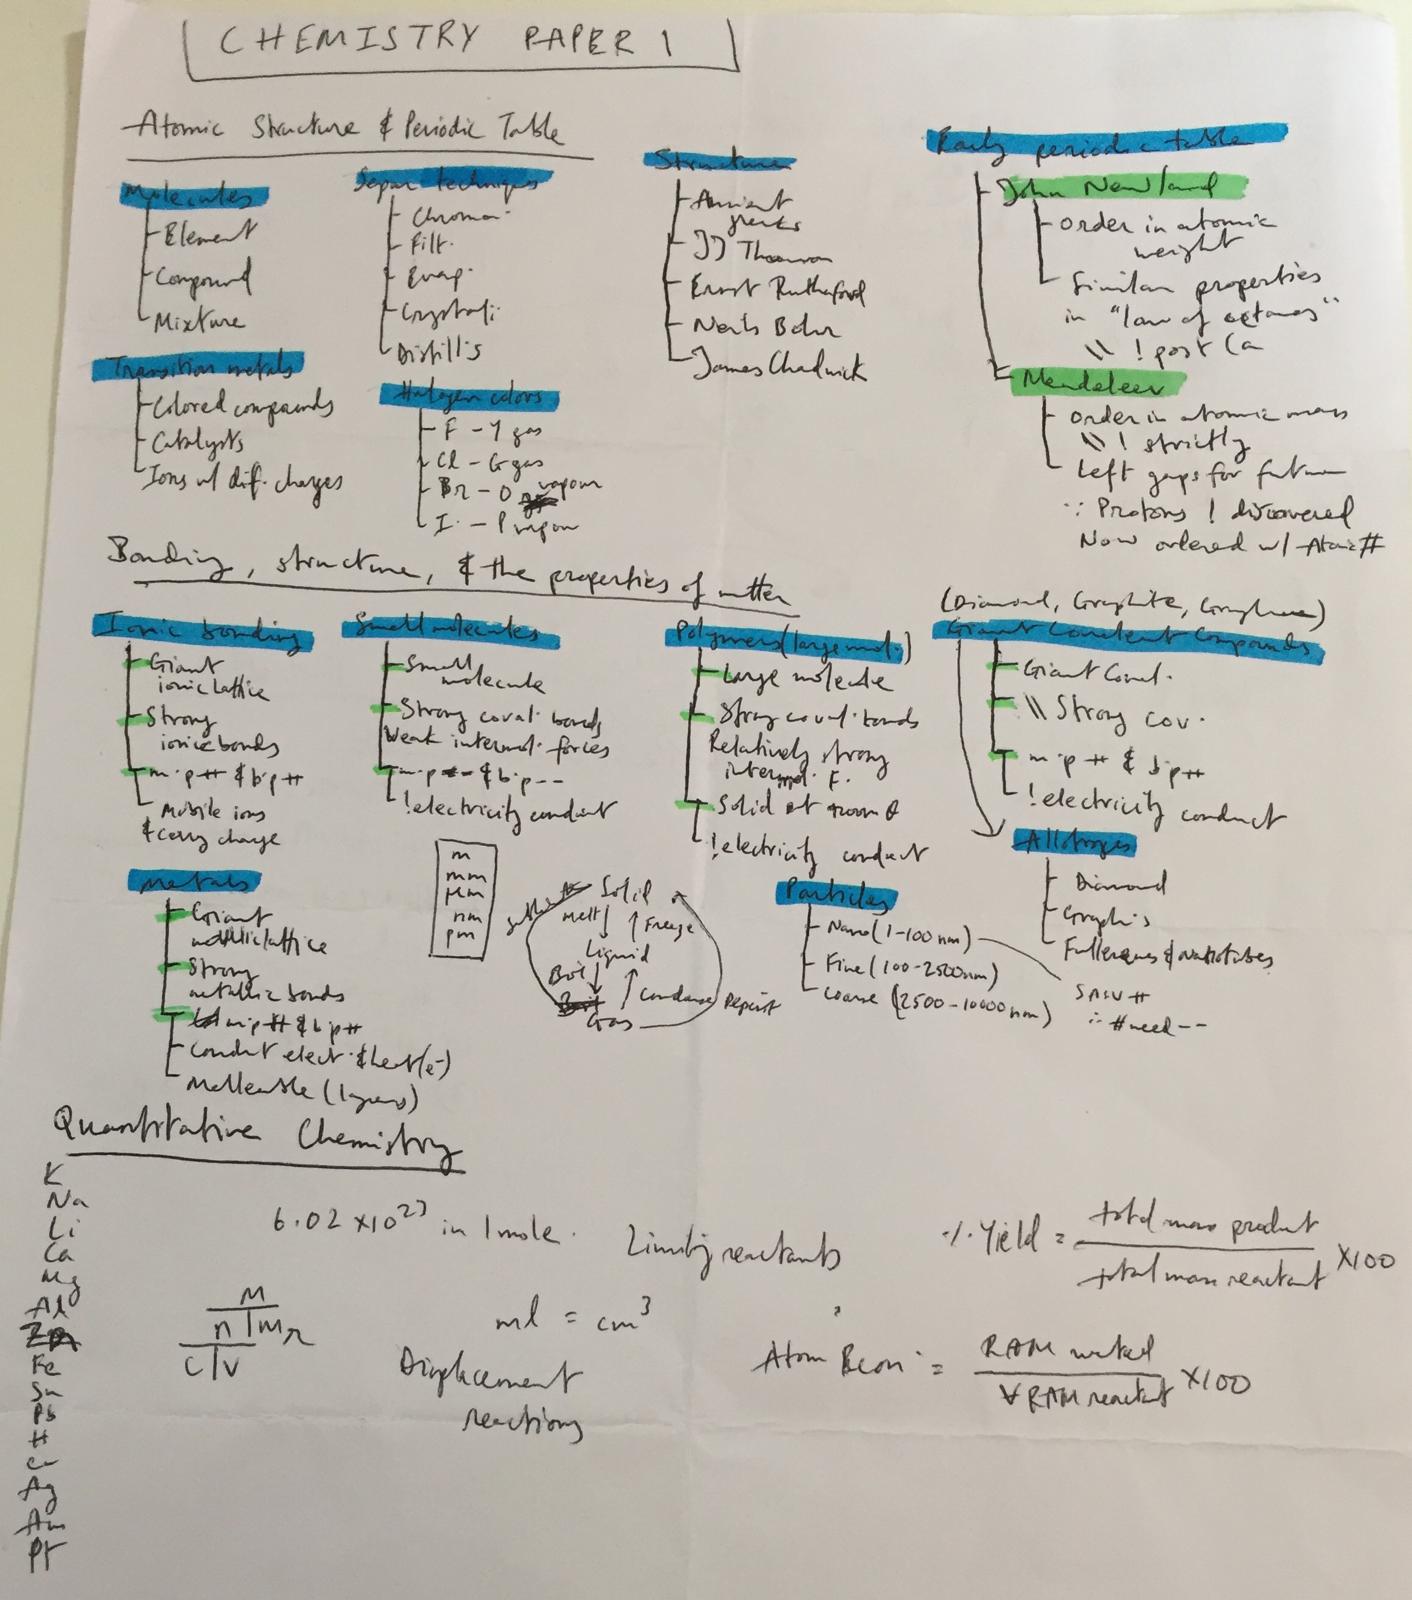 CHEMISTRY PAPER 1
Atomic Structure & Periodic Table
Molecules
Element
Compound
Mixture
Separ techniques
Chroma.
Filt.
Evap.
Crystali
Distill's
Structure
Ancient
greeks
JJ Thomson
Ernst Rutherford
Neils Bohr
James Chadwick
Early periodic table
John Newland
order in atomic
weight
Similar properties
in "law of octaves"
\\ ! post Ca
Mendeleev
order in atomic mass
\\ ! strictly
Left gaps for future
∵ Protons ! discovered
Now ordered w/ Atomic #
Transition metals
Colored compounds
Catalysts
Ions w/ dif. charges
Halogen colors
F - Y gas
Cl - G gas
Br - O vapour
I - P vapour
Bonding, structure, & the properties of matter
Ionic bonding
Giant
ionic lattice
Strong
ionic bonds
m.p ++ & b.p ++
Mobile ions
& carry charge
Small molecules
Small
molecule
Strong coval. bonds
Weak intermol. forces
m.p -- & b.p --
! electricity conduct
Polymers (large mol.)
Large molecule
Strong coval. bonds
Relatively strong
intermol. F.
Solid at room θ
! electricity conduct
(Diamond, Graphite, Graphene)
Giant Covalent Compounds
Giant Coval.
\\ Strong cov.
m.p ++ & b.p ++
! electricity conduct
Allotropes
Diamond
Graphi's
Fullerenes & Nanotubes
Metals
Giant
metallic lattice
Strong
metallic bonds
m.p ++ & b.p ++
Conduct elect. & heat (e-)
Malleable (layers)
m
mm
μm
nm
pm
Solid
Melt
Freeze
Liquid
Boil
Condense
Gas
Deposit
Particles
Nano (1-100 nm)
Fine (100-2500nm)
Coarse (2500-10000nm)
SA:V ++
∴ # need --
Quantitative Chemistry
K
Na
Li
Ca
Mg
Al
Zn
Fe
Sn
Pb
H
Cu
Ag
Au
Pt
6.02 ×10^23 in 1 mole.
Limitig reactants
% Yield = total mass product / total mass reactant ×100
M
n | Mr
c | v
ml = cm³
Displacement
reactions
Atom Econ. = RAM wated / ∀ RAM reactant ×100